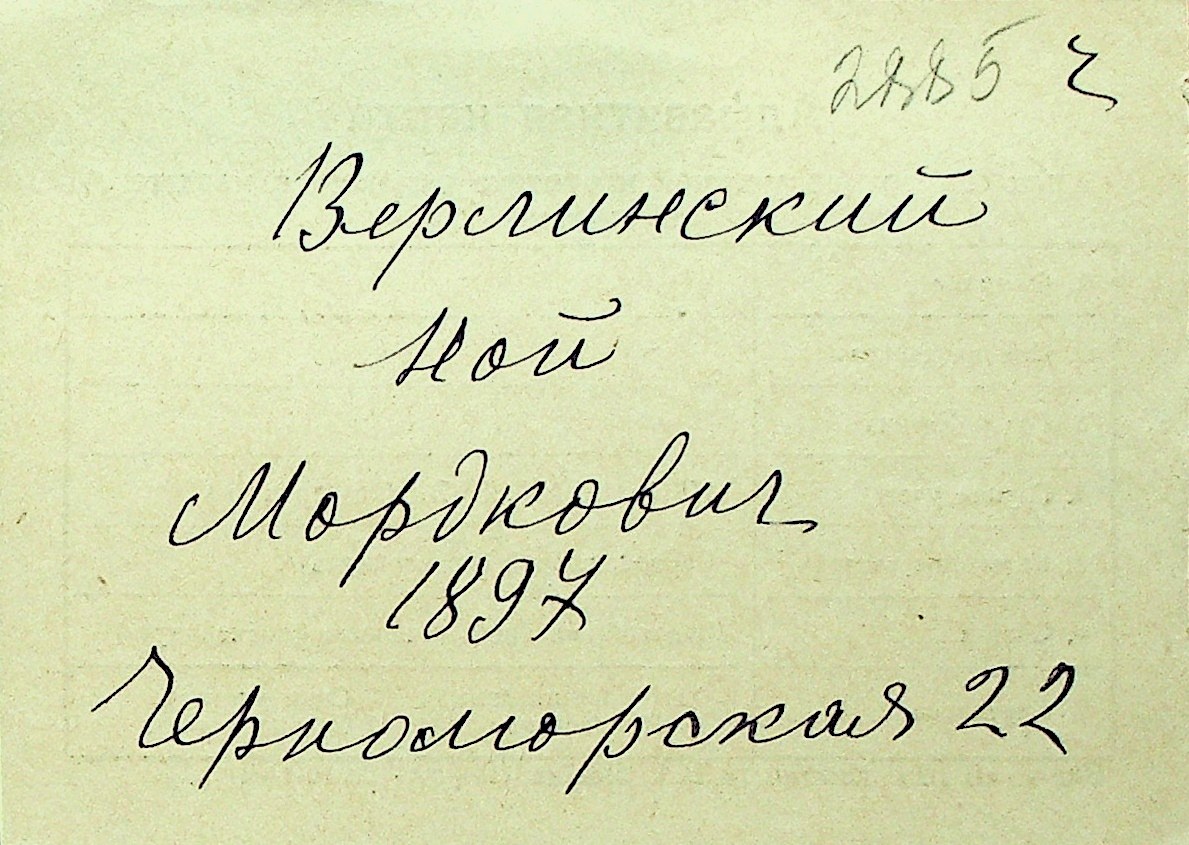 2885 ч
Верлинский
Ной
Мордкович
1897
Черноморская 22